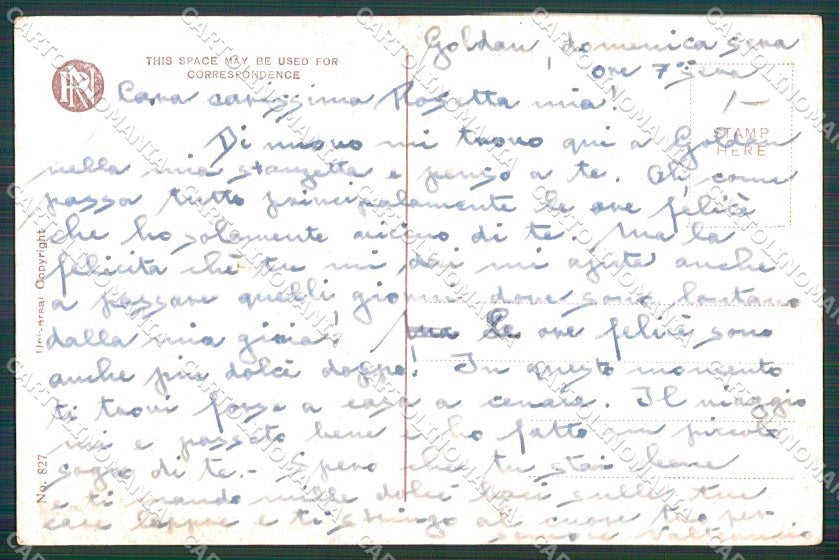 Goldau, domenica sera
ore 7 sera
THIS SPACE MAY BE USED FOR
CORRESPONDENCE
Cara carissima Rosetta mia!
STAMP
HERE
Di nuovo mi trovo qui a Goldau
nella mia stanzetta e penso a te. Oh, come
passa tutto principalamente le ore felice
che ho solamente vicino di te. Ma la
felicita che tu mi dai mi ajuta anche
a passare quelli giorni dove sono lontano
dalla mia gioia! Le ore felice sono
anche piu dolce doppo! In questo momento
ti trovi forse a casa a cenare. Il viaggio
mi e passato bene e ho fatto un piccolo
sogno di te.- Spero che tu stai bene
e ti mando mille dolce baci sulle tue
care lappre e ti stringo al cuore tuo per
sempre
Universal Copyright
No. 827
CARTOLINOMANIA